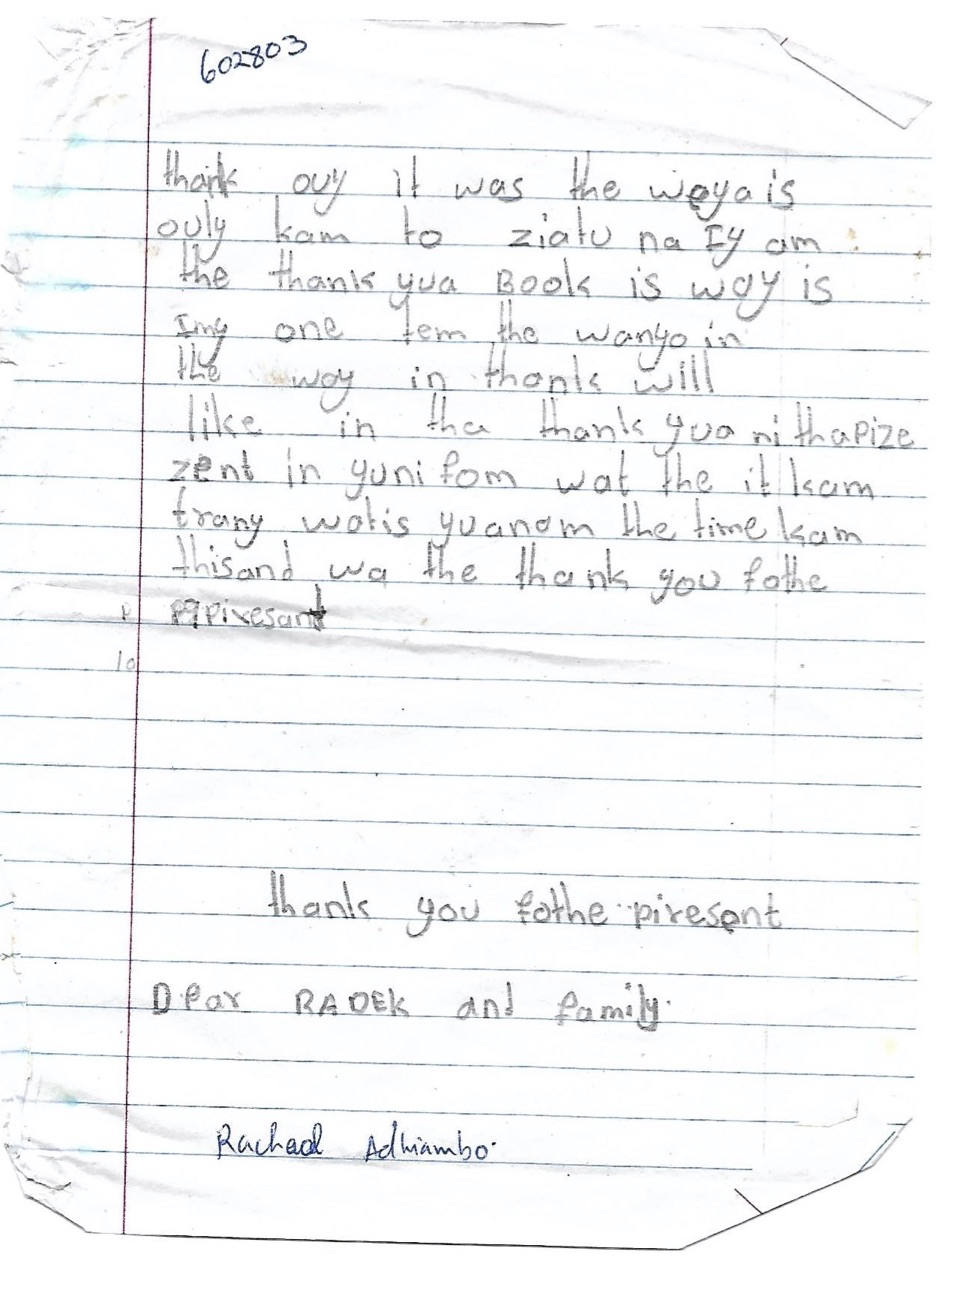 602803
thank ouy it was the weya is
ouly kam to ziatu na Iy am
the thank yua Book is way is
Img one tem the wanyo in
the way in thank will
like in tha thank yua ni thapize
zent in yuni fom wat the it kam
trany watis yuanam the time kam
thisand wa the thank you fothe
pixesant
10
thank you fothe pixesent
Dear RADEK and family.
Rachael Adhiambo.